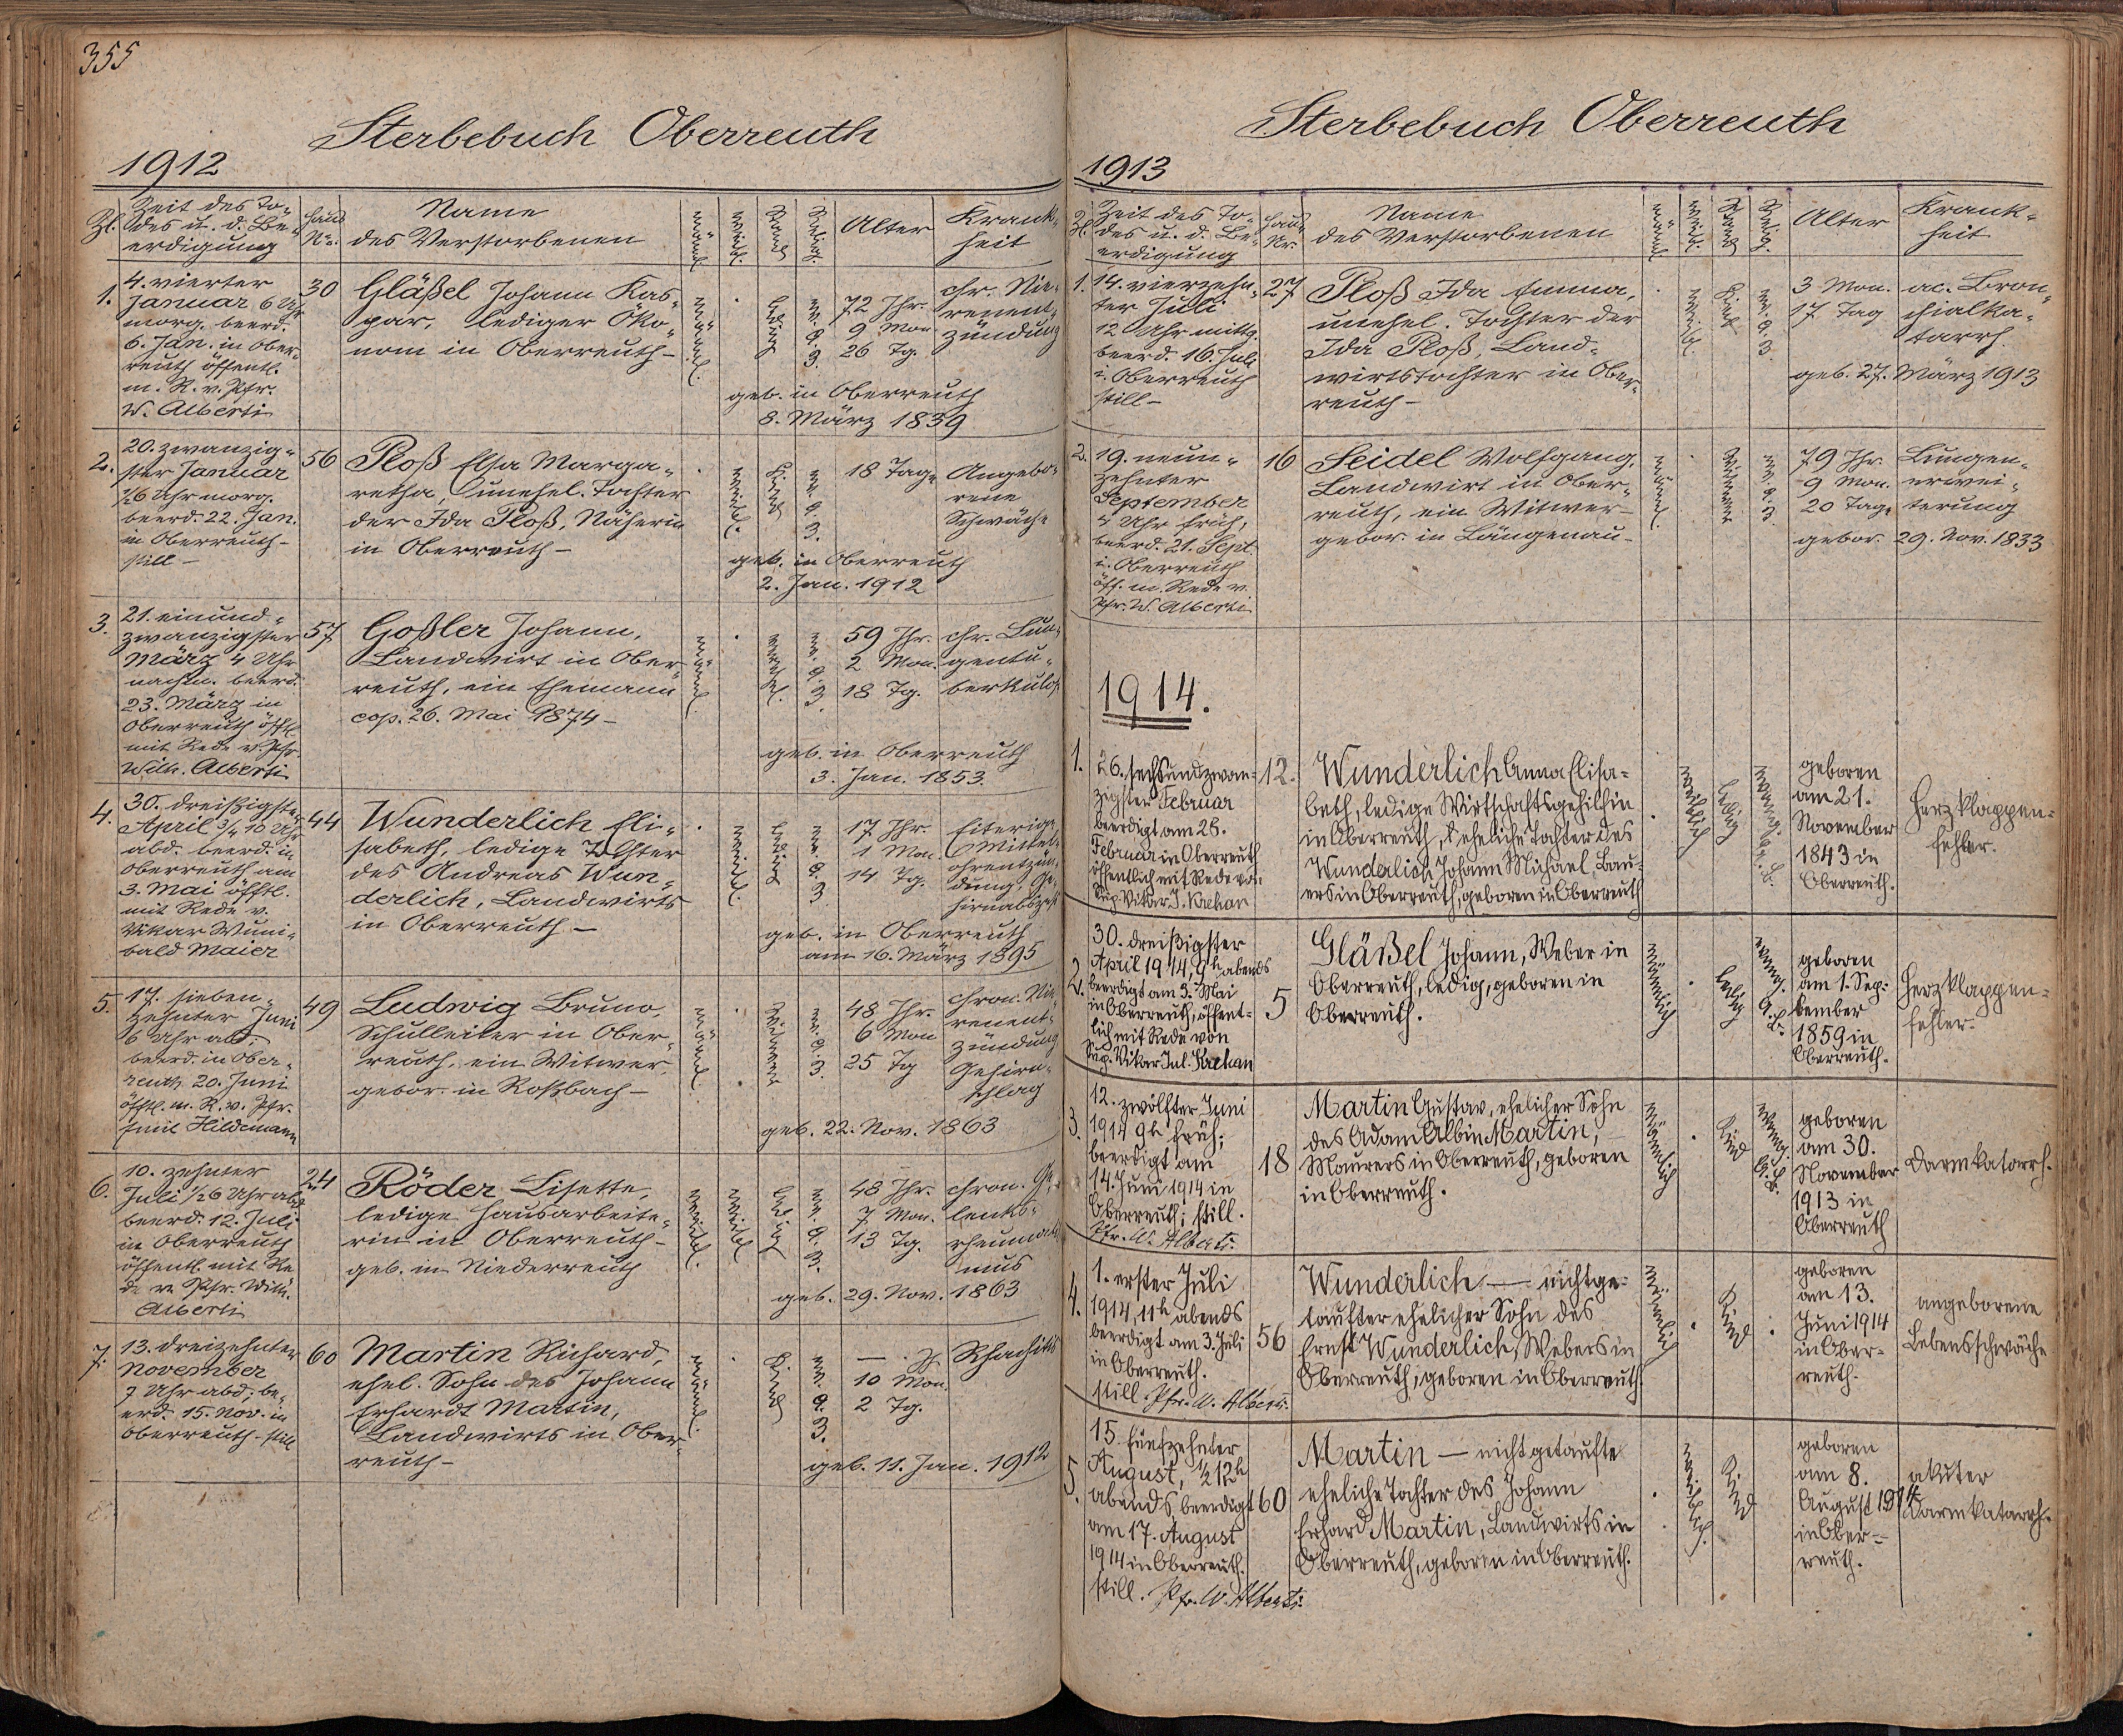 355
Sterbebuch Oberreuth
1912
Zl.
Zeit des To-
des u. d. Be-
erdigung
Haus
Nr.
Name
des Verstorbenen
männl.
weibl.
Stand
Relig.
Alter
Krank-
heit
1.
4. vierter
Januar 6 Uhr
morg. beerd.
6. Jan. in Ober-
reuth öffentl.
m. R. v. Pfr.
W. Alberti
30
Gläßel Johann Kas-
par, lediger Öko-
nom in Oberreuth -
männl.
ledig
72 Jhr.
9 Mon
26 Tg.
chr. Nie-
renent-
zündung
geb. in Oberreuth
8. März 1839
2.
20. zwanzig-
ster Januar
½6 Uhr morg.
beerd. 22. Jan.
in Oberreuth -
still -
56
Ploß Elsa Marga-
retha, unehel. Tochter
der Ida Ploß, Näherin
in Oberreuth -
weibl.
Kind
18 Tage
Angebo-
rene
Schwäche
geb. in Oberreuth
2. Jan. 1912
3.
21. einund-
zwanzigster
März 4 Uhr
nachm. beerd.
23. März in
Oberreuth öfftl.
mit Rede v. Pfr.
Wilh. Alberti
57
Goßler Johann,
Landwirt in Ober-
reuth, ein Ehemann
cop. 26. Mai 1874 -
männl.
59 Jhr.
2 Mon.
18 Tg.
chr. Lun-
gentu-
berkulos.
geb. in Oberreuth
3. Jan. 1853.
4.
30. dreißigster
April ¾ 10 Uhr
abd. beerd. in
Oberreuth am
3. Mai öfftl.
mit Rede v.
Vikar Wuni-
bald Maier
44
Wunderlich Eli-
sabeth, ledige Tochter
des Andreas Wun-
derlich, Landwirts
in Oberreuth -
weibl.
ledig
17 Jhr.
1 Mon.
14 Tg.
Eiterige
Mittel-
ohrentzün-
dung, Ge-
hirnabszeß
geb. in Oberreuth
am 16. März 1895
5.
17. sieben-
zehnter Juni
6 Uhr abd.
beerd. in Ober-
reuth 20. Juni
öfftl. m. R. v. Pfr.
Emil Hildemann
49
Ludwig Bruno,
Schulleiter in Ober-
reuth, ein Witwer,
gebor. in Roßbach -
männl.
Witwer
48 Jhr.
6 Mon
25 Tg
chron. Nie-
renent-
zündung
Gehirn-
schlag
geb. 22. Nov. 1863
6.
10. zehnter
Juli ½6 Uhr abd.
beerd. 12. Juli
in Oberreuth
öffentl. mit Re
de v. Pfr. Wilh.
Alberti
24
Röder Lisette,
ledige Hausarbeite-
rin in Oberreuth -
geb. in Niederreuth
weibl.
ledig
48 Jhr.
7 Mon.
13 Tg.
chron. Ge-
lenks-
rheumatis
mus
geb. 29. Nov. 1863
7.
13. dreizehnter
November
7 Uhr abd. be-
erd. 15. Nov. in
Oberreuth - still
60
Martin Richard,
ehel. Sohn des Johann
Erhardt Martin,
Landwirts in Ober-
reuth -
männl.
Kind
— . Jh
10 Mon.
2 Tg.
Rhachitis
geb. 11. Jan. 1912
Sterbebuch Oberreuth
1913
Zl.
Zeit des To-
des u. d. Be-
erdigung
Haus
Nr.
Name
des Verstorbenen
männl.
weibl.
Stand
Relig.
Alter
Krank-
heit
1.
14. vierzehn-
ter Juli
12 Uhr mittg.
beerd. 16. Juli
i. Oberreuth
still -
27
Ploß Ida Emma,
unehel. Tochter der
Ida Ploß, Land-
wirtstochter in Ober-
reuth -
weibl.
Kind
3 Mon.
17 Tag
ac. Bron-
chialka-
tarrh.
geb. 27. März 1913
2.
19. neun-
zehnter
September
4 Uhr früh,
beerd. 21. Sept.
i. Oberreuth
öff. m. Rede v.
Pfr. W. Alberti
16
Seidel Wolfgang,
Landwirt in Ober-
reuth, ein Witwer -
gebor. in Längenau -
männl.
Witwer
79 Jhr.
9 Mon.
20 Tage
Lungen-
erwei-
terung
gebor. 29. Nov. 1833
1914.
1.
26. sechsundzwan-
zigster Februar
beerdigt am 28.
Februar in Oberreuth
öffentlich mit Rede von
Sup. Vikar J. Kachan
12.
Wunderlich Anna Elisa-
beth, ledige Wirtschaftsgehilfin
in Oberreuth, eheliche Tochter des
Wunderlich Johann Michael, Bau-
ers in Oberreuth, geboren in Oberreuth
weiblich
ledig
evang. A. B.
geboren
am 21.
November
1843 in
Oberreuth.
Herzklappen-
fehler.
2.
30. dreißigster
April 1914, 9h abends
beerdigt am 3. Mai
in Oberreuth, öffent-
lich mit Rede von
Sup. Vikar Jul. Kachan
5
Gläßel Johann, Weber in
Oberreuth, ledig, geboren in
Oberreuth.
männlich
ledig
evang. A. B.
geboren
am 1. Sep-
tember
1859 in
Oberreuth.
Herzklappen-
fehler.
3.
12. zwölfter Juni
1914 9h früh;
beerdigt am
14. Juni 1914 in
Oberreuth; still.
Pfr. W. Alberti.
18
Martin Gustav, ehelicher Sohn
des Adam Albin Martin,
Maurers in Oberreuth, geboren
in Oberreuth.
männlich
Kind
evang. A. B.
geboren
am 30.
November
1913 in
Oberreuth
Darmkatarrh.
4.
1. erster Juli
1914, 11h abends
beerdigt am 3. Juli
in Oberreuth.
still. Pfr. W. Alberti.
56
Wunderlich — nichtge-
taufter ehelicher Sohn des
Ernst Wunderlich, Webers in
Oberreuth, geboren in Oberreuth.
männlich
Kind
geboren
am 13.
Juni 1914
in Ober-
reuth.
angeborene
Lebensschwäche
5.
15. fünfzehnter
August, ½12h
abends, beerdigt
am 17. August
1914 in Oberreuth.
still. Pfr. W. Alberti.
60
Martin — nicht getaufte
eheliche Tochter des Johann
Erhard Martin, Landwirts in
Oberreuth, geboren in Oberreuth.
weiblich.
Kind
geboren
am 8.
August 1914
in Ober-
reuth.
akuter
Darmkatarrh.